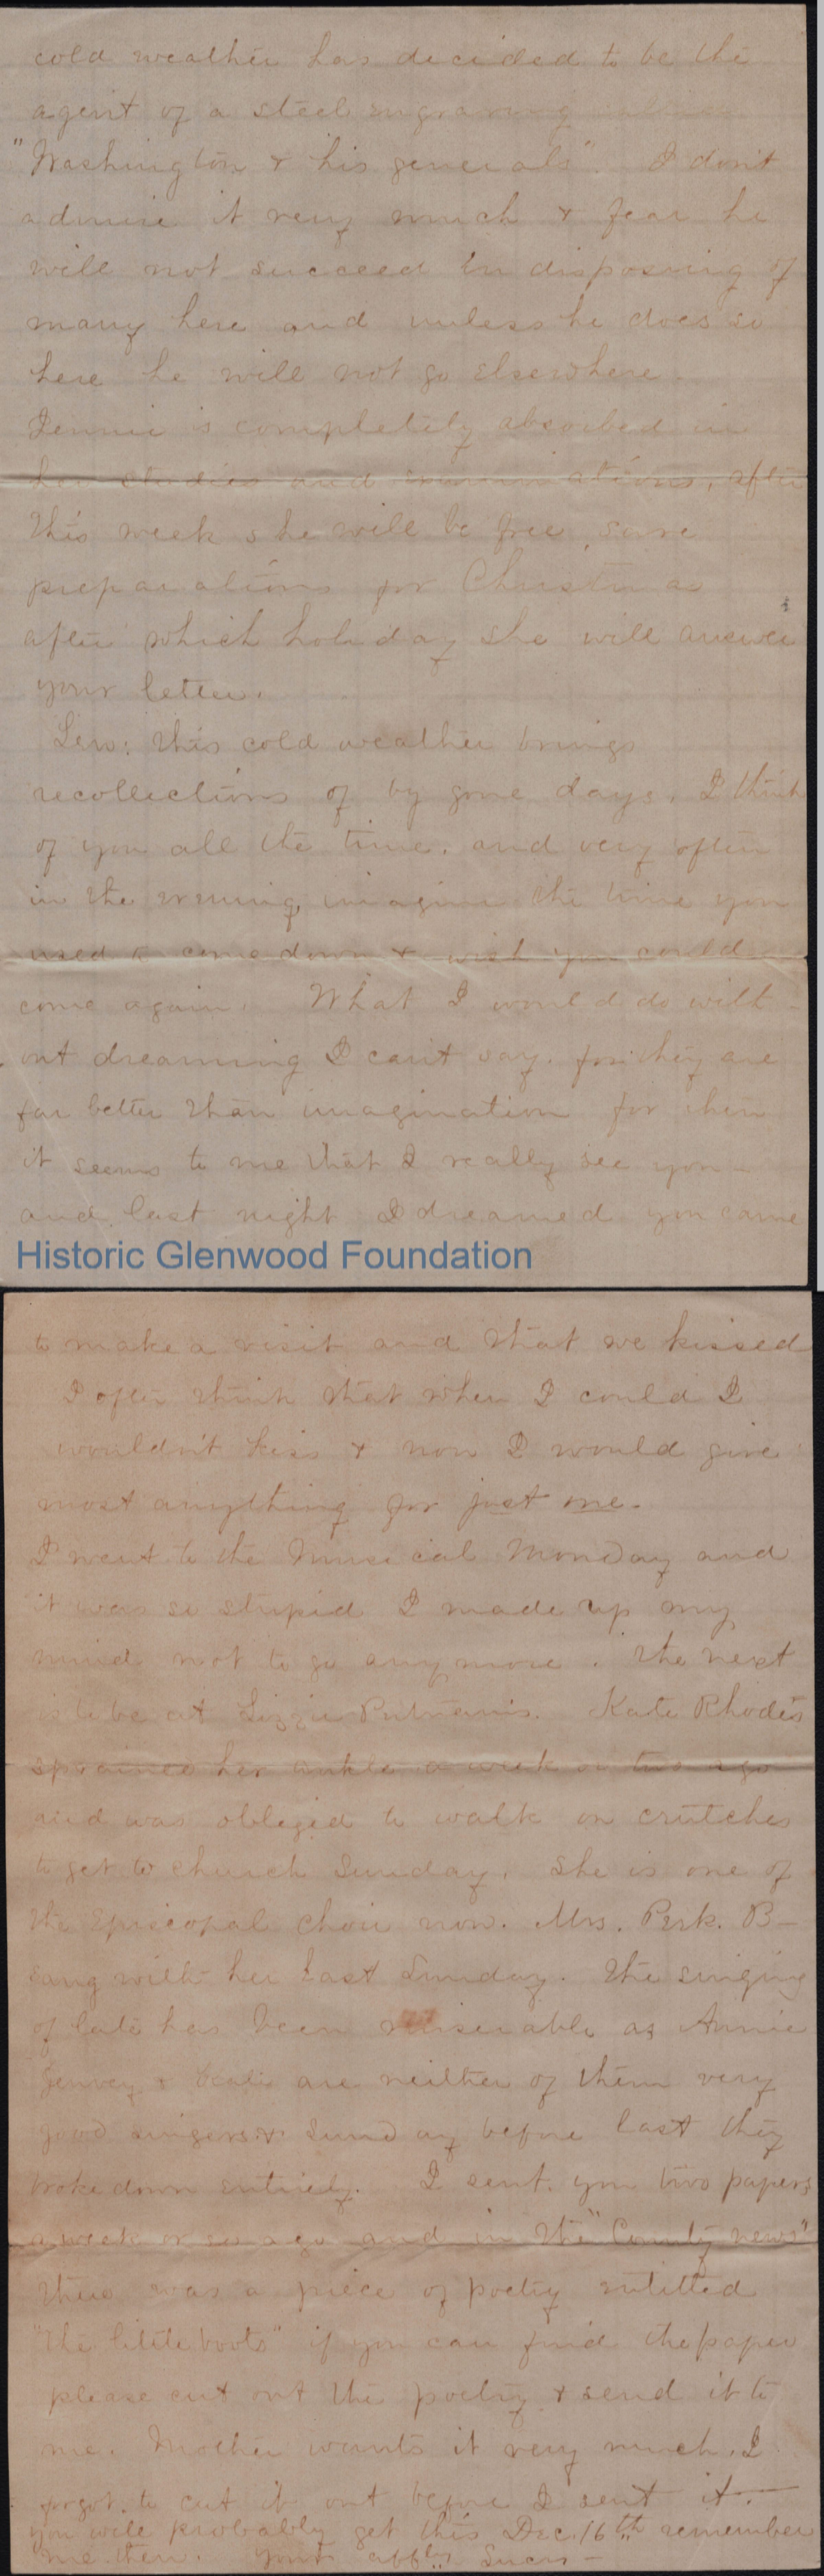 cold weather has decided to be the
agent of a steel engraving
"Washington & his generals". I don't
admire it very much & fear he
will not succeed in disposing of
many here and unless he does so
here he will not go elsewhere.
Jennie is completely absorbed in
her studies and examinations, after
this week she will be free, save
preparations for Christmas
after which holiday she will answer
your letter.
Lew: this cold weather brings
recollections of by gone days, I think
of you all the time, and very often
in the evening, imagine the time you
used to come down & wish you could
come again. What I would do with-
out dreaming I can't say. for they are
far better than imagination for then
it seems to me that I really see you -
and last night I dreamed you came
Historic Glenwood Foundation
to make a visit and that we kissed
I often think that when I could I
wouldn't kiss & now I would give
most anything for just one.
I went to the Musical Monday and
it was so stupid I made up my
mind not to go any more. The next
is to be at Lizzie Putnam's. Kate Rhodes
sprained her ankle a week or two ago
and was obliged to walk on crutches
to get to church Sunday. She is one of
the Episcopal Choir now. Mrs. Perk. B-
sang with her last Sunday. The singing
of late has been miserable as Annie
& are neither of them very
good singers & Sunday before last they
broke down entirely. I sent you two papers
a week or so ago and in the "County news"
there was a piece of poetry entitled
"the little boots" if you can find the paper
please cut out the poetry & send it to
me. Mother wants it very much. I
forgot to cut it out before I sent it.
you will probably get this Dec. 16th remember
me then. Your